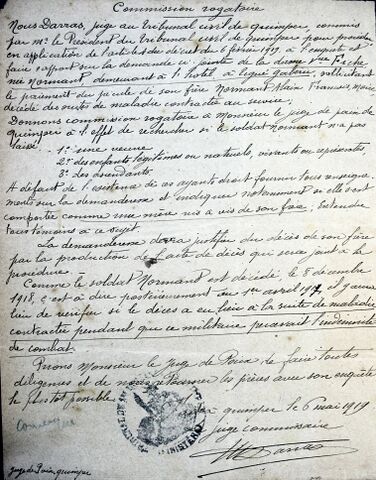 Commission rogatoire
Nous Darras, juge au tribunal civil de quimper, commis
par Mr le Président du tribunal civil de quimper pour procéder
en application de l'article 1 du décret du 6 février 1919 à l'enquête et
faire rapport sur la demande ci jointe de la dame
née Normant demeurant à l'hôtel à Ergué gabéric, sollicitant
le paiement du pécule de son frère Normant Alain François, Marie
décédé des suites de maladie contractée au service;
Donnons commission rogatoire à Monsieur le juge de paix de
quimper à l'effet de rechercher si le soldat Normant n'a pas
laissé.
1º une veuve
2º des enfants légitimes ou naturels, vivants ou représentés
3º des ascendants.
A défaut de l'existence de ces ayants droit fournir tous renseigne-
ments sur la demanderesse et indiquer notamment si elle s'est
comportée comme une mère vis à vis de son frère; entendre
tous témoins à ce sujet.
La demanderesse devra justifier du décès de son frère
par la production de l'acte de décès qui sera joint à la
procédure.
Comme le soldat Normant est décédé le 8 décembre
1918, c'est à dire postérieurement au 1er avril 1917, il y aura
lieu de vérifier si le décès a eu lieu à la suite de maladie
contractée pendant que ce militaire percevait l'indemnité
de combat.
Prions Monsieur le Juge de Paix, de faire toutes
diligences et de nous retourner les pièces avec son enquête
le plus tôt possible.
quimper le 6 mai 1919
juge commissaire
Darras
juge de Paix quimper